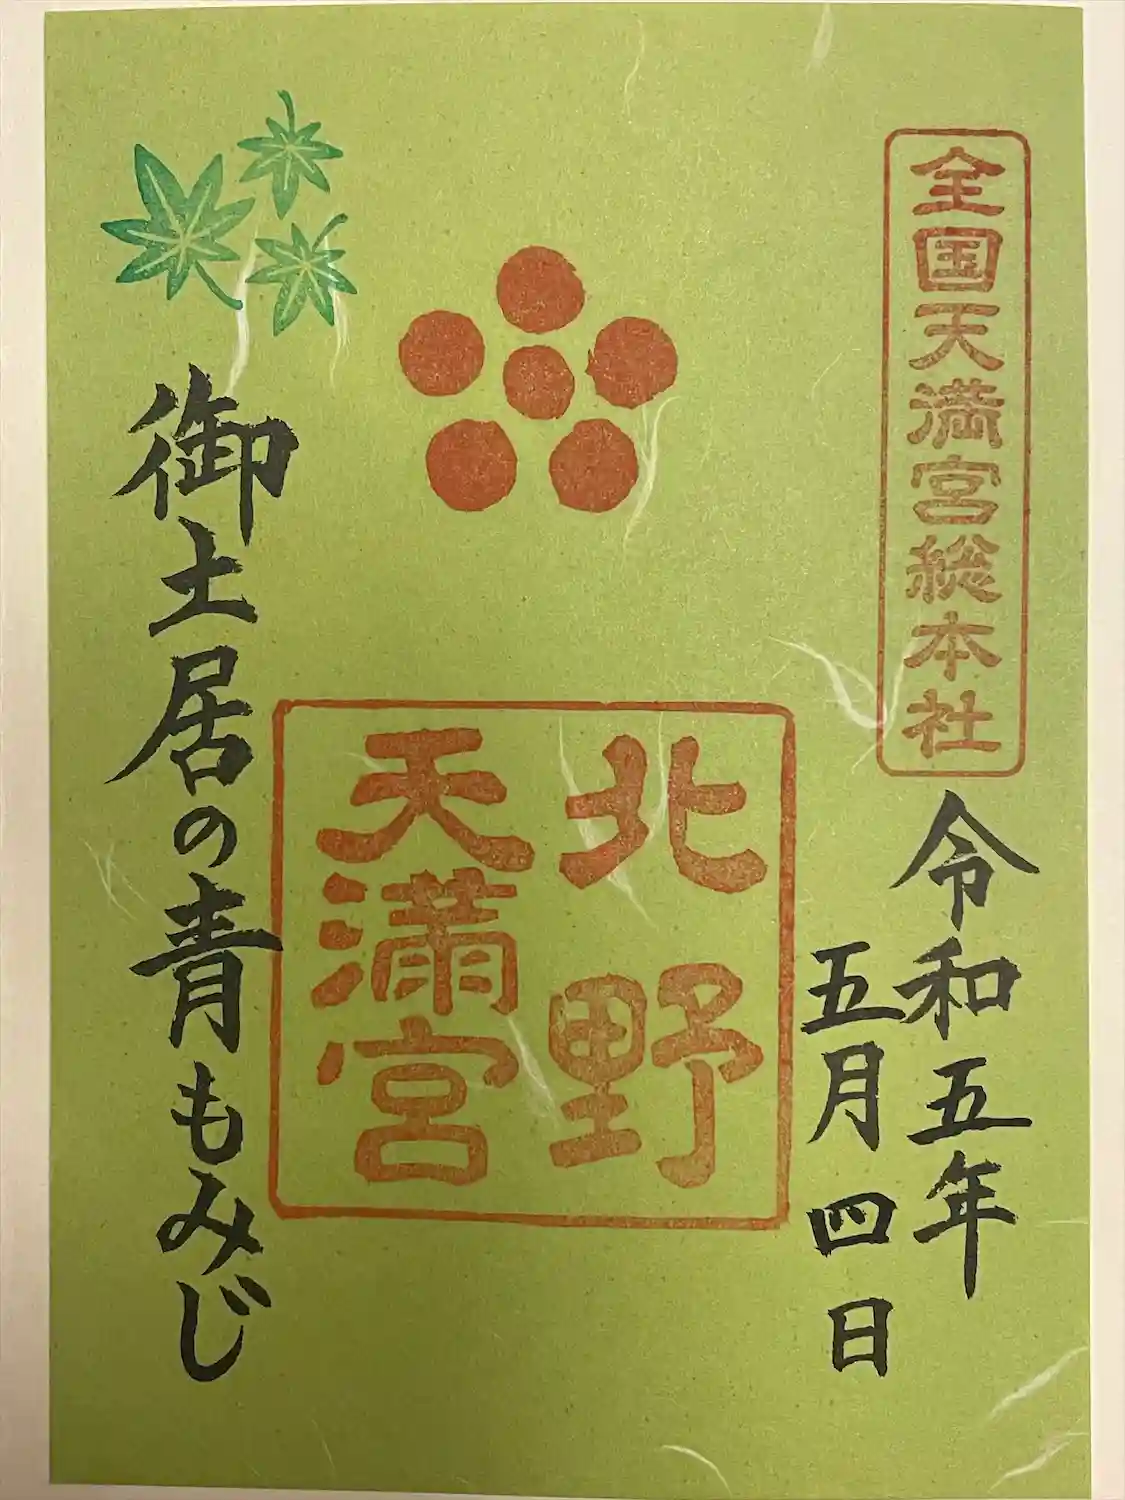 全国天満宮総本社
令和五年
五月四日
北野
天満宮
御土居の青もみじ